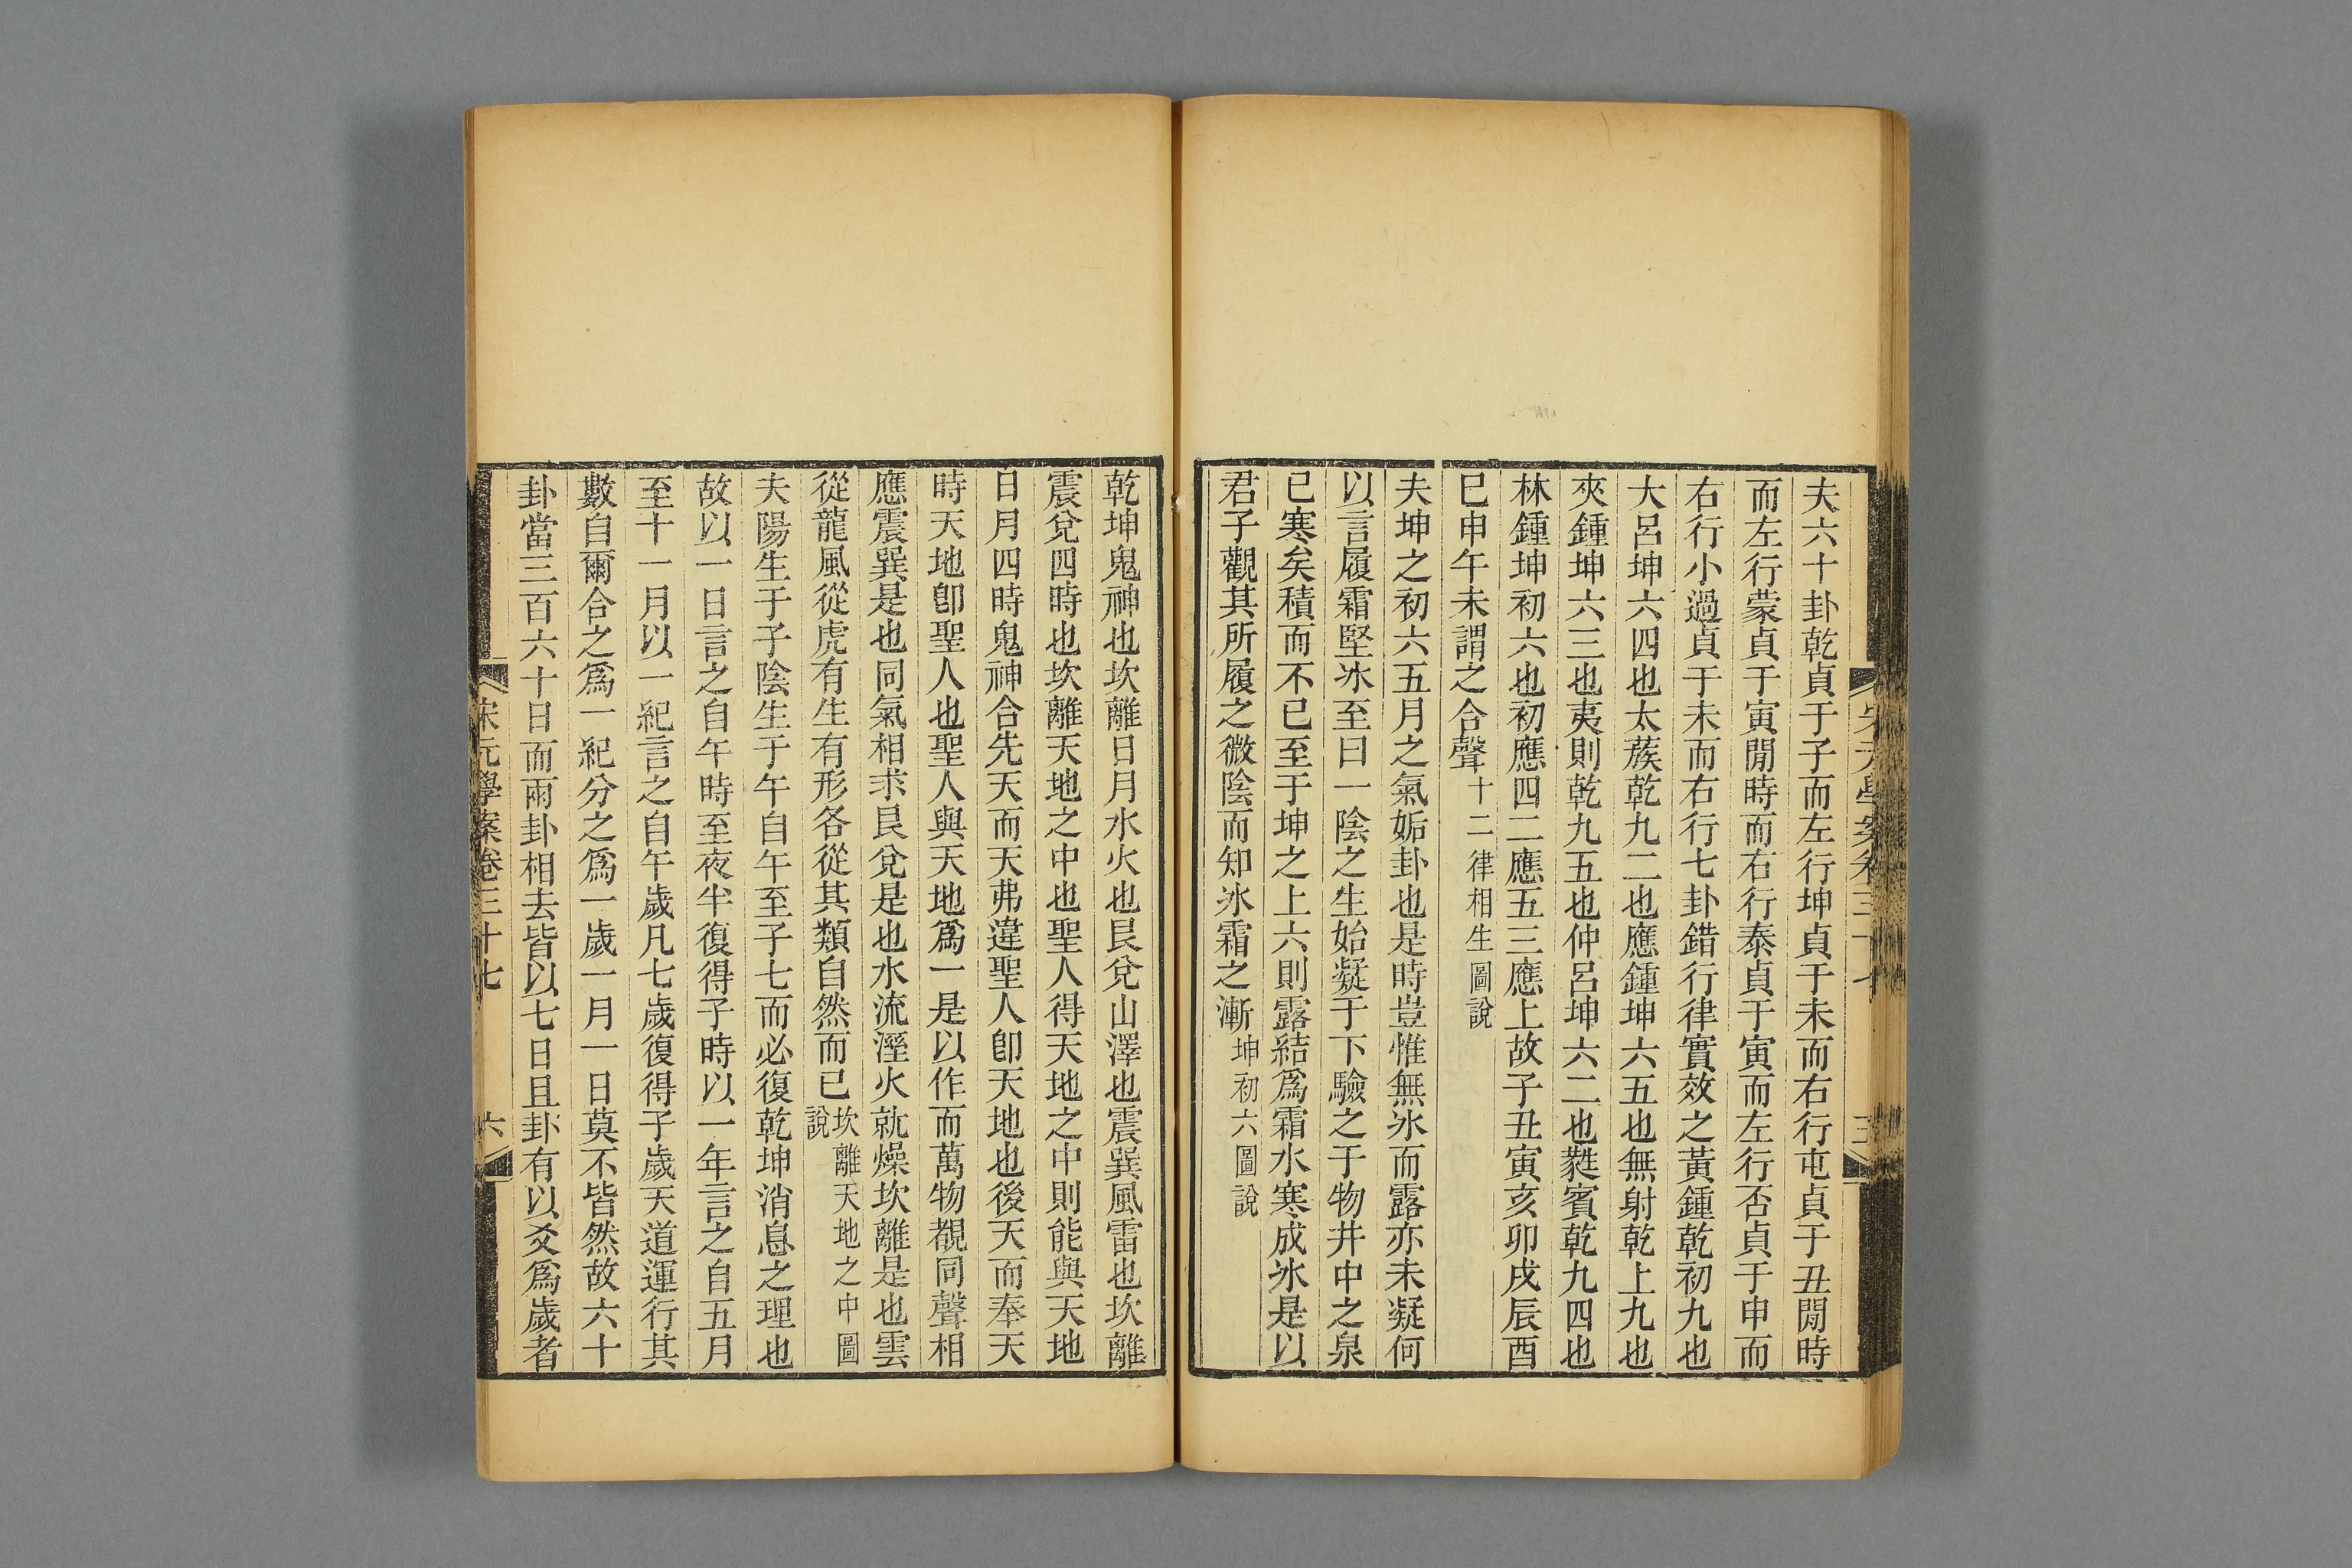 夫六十卦乾貞于子而左行坤貞于未而右行屯貞于丑閒時
而左行蒙貞于寅閒時而右行泰貞于寅而左行否貞于申而
右行小過貞于未而右行七卦錯行律實效之黃鍾乾初九也
大呂坤六四也太蔟乾九二也應鍾坤六五也無射乾上九也
夾鍾坤六三也夷則乾九五也仲呂坤六二也蕤賓乾九四也
林鍾坤初六也初應四二應五三應上故子丑寅亥卯戌辰酉
巳申午未謂之合聲十二律相生圖說
夫坤之初六五月之氣姤卦也是時豈惟無冰而露亦未凝何
以言履霜堅冰至曰一陰之生始凝于下驗之于物井中之泉
已寒矣積而不已至于坤之上六則露結爲霜水寒成冰是以
君子觀其所履之微陰而知冰霜之漸坤初六圖說
乾坤鬼神也坎離日月水火也艮兌山澤也震巽風雷也坎離
震兌四時也坎離天地之中也聖人得天地之中則能與天地
日月四時鬼神合先天而天弗違聖人卽天地也後天而奉天
時天地卽聖人也聖人與天地爲一是以作而萬物覩同聲相
應震巽是也同氣相求艮兌是也水流溼火就燥坎離是也雲
從龍風從虎有生有形各從其類自然而已坎離天地之中圖
說
夫陽生于子陰生于午自午至子七而必復乾坤消息之理也
故以一日言之自午時至夜半復得子時以一年言之自五月
至十一月以一紀言之自午歲凡七歲復得子歲天道運行其
數自爾合之爲一紀分之爲一歲一月一日莫不皆然故六十
卦當三百六十日而兩卦相去皆以七日且卦有以爻爲歲者
宋元學案卷三十七
六